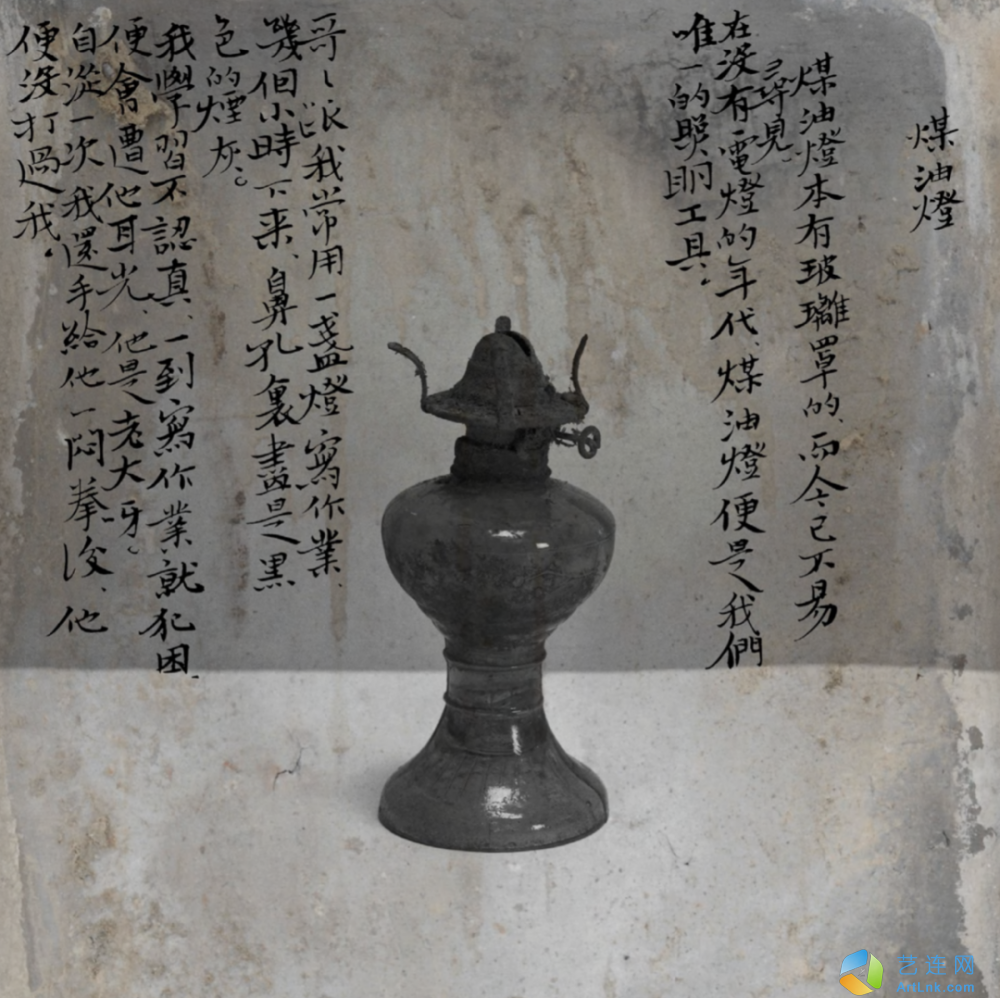 煤油燈
煤油燈本有玻璃罩的、而今已不易
尋見。
在沒有電燈的年代、煤油燈便是我們
唯一的照明工具。
哥哥跟我常用一盞燈寫作業、
幾個小時下来、鼻孔裏盡是黑
色的煙灰。
我學習不認真、一到寫作業就犯困、
便會遭他耳光、他是老大呀。
自從一次我還手給他一悶拳後、他
便沒打過我。
艺连网
ArtLnx.com